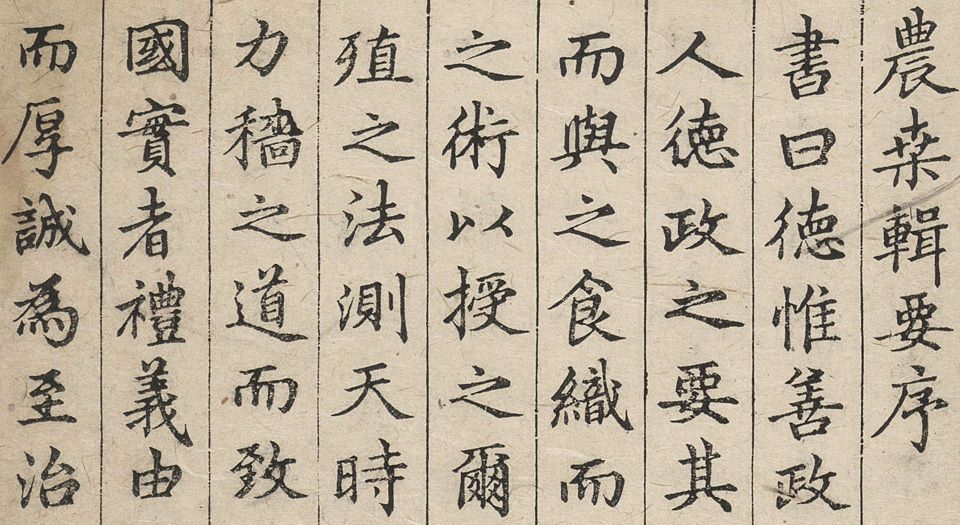 農桒輯要序
書曰徳惟善政
人徳政之要其
而與之食織而
之術以授之爾
殖之法測天時
力穡之道而致
國實者禮義由
而厚誠為至治